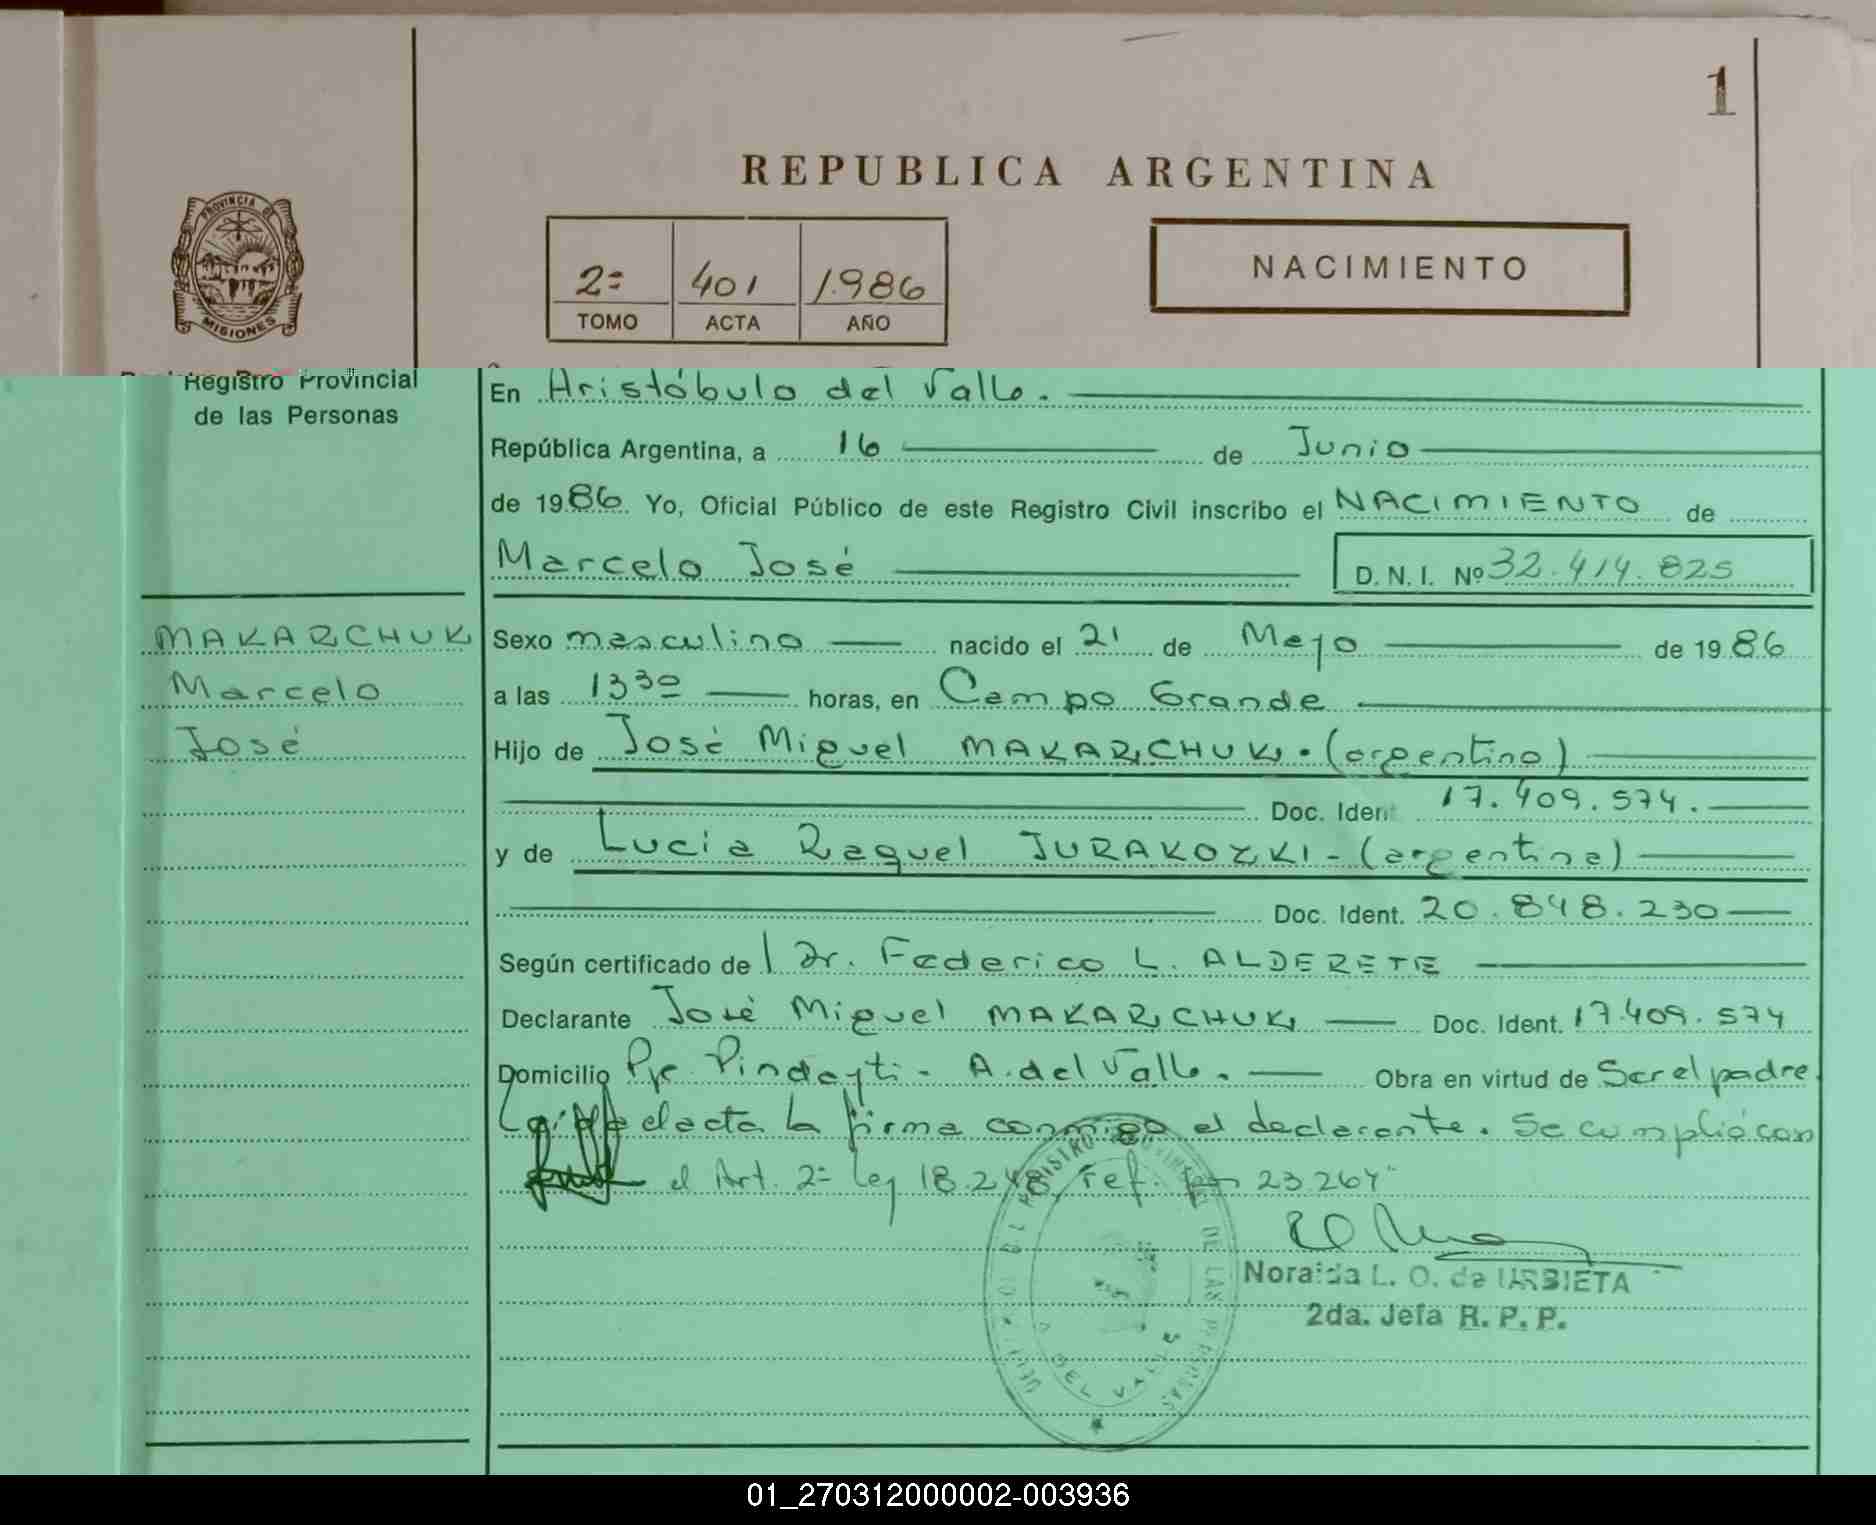 1
REPUBLICA ARGENTINA
PROVINCIA DE
MISIONES
2º 401 1.986
TOMO ACTA AÑO
NACIMIENTO
Registro Provincial
de las Personas
En Aristóbulo del Valle.
República Argentina, a 16 de Junio
de 1986 Yo, Oficial Público de este Registro Civil inscribo el NACIMIENTO de
Marcelo José D. N. I. Nº 32.414.825
MAKARCHUK
Marcelo
José
Sexo masculino nacido el 21 de Mayo de 1986
a las 13 30 horas, en Campo Grande
Hijo de José Miguel MAKARCHUK. (argentino)
Doc. Ident 17.409.574.
y de Lucia Raquel JURAKOZKI - (argentina)
Doc. Ident. 20.848.230
Según certificado de Dr. Federico L. ALDERETE
Declarante José Miguel MAKARCHUK Doc. Ident. 17.409.574
Domicilio Pje Pindayti - A. del Valle. Obra en virtud de Ser el padre
Leída el acta la firma conmigo el declarante. Se cumplió con
el Art. 2º Ley 18.248, ref. 23.264"
Noraida L. O. de URBIETA
2da. Jefa R. P. P.
DE LAS PERSONAS
DEL VALLE
01_270312000002-003936